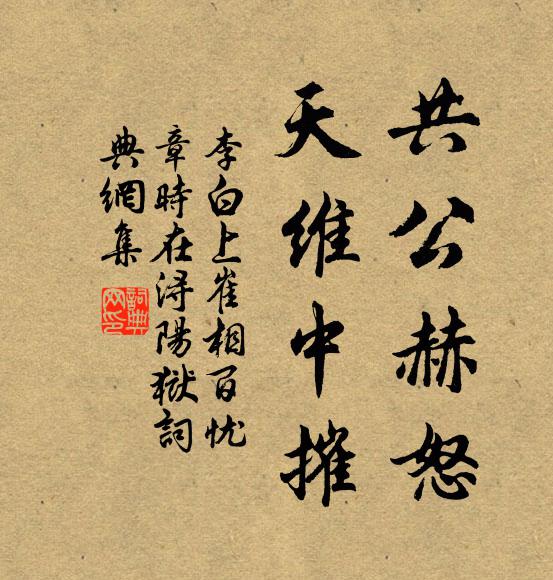 共公赫怒
天維中摧
李白上崔相百忧
章時在浔陽獄詞
典網集
詞典網印